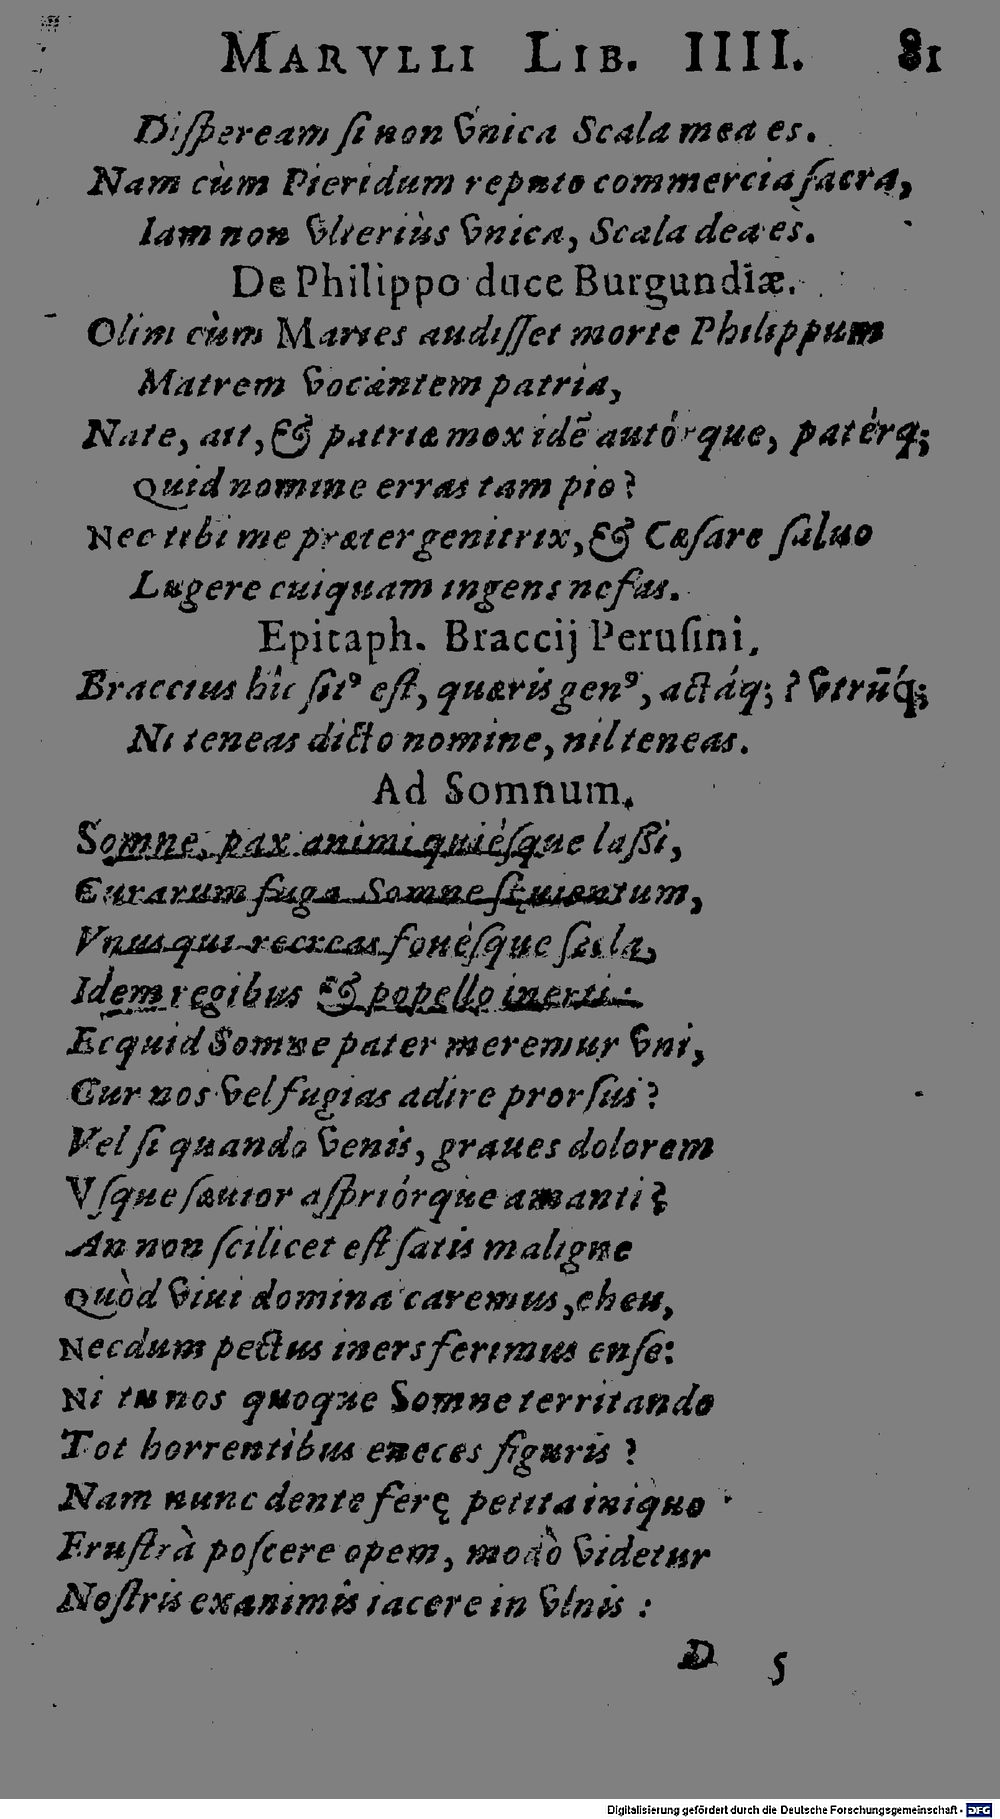 MARVLLI LIB. IIII. 81
Diſpeream ſi non vnica Scala mea es.
Nam cùm Pieridum reputo commercia ſacra,
Iam non vlteriùs vnica, Scala dea es.
De Philippo duce Burgundiæ.
Olim cùm Martes audiſſet morte Philippum
Matrem vocantem patria,
Nate, ait, & patriæ mox idē autórque, patérq;
Quid nomine erras tam pio?
Nec tibi me præter genitrix, & Cæſare ſaluo
Lugere cuiquam ingens nefas.
Epitaph. Braccij Peruſini.
Braccius hîc ſitꝰ eſt, quæris genꝰ, actáq;? vtrūq́;
Ni teneas dicto nomine, nil teneas.
Ad Somnum.
Somne, pax animi quiéſque laſſi,
Curarum fuga Somne ſęuientum,
Vnus qui recreas fouéſque ſecla,
Idem regibus & popello inerti:
Ecquid Somne pater meremur vni,
Cur nos vel fugias adire prorſus?
Vel ſi quando venis, graues dolorem
Vſque ſæuior aſpriórque amanti?
An non ſcilicet eſt ſatis maligne
Quòd viui domina caremus, eheu,
Necdum pectus iners ferimus enſe:
Ni tu nos quoque Somne territando
Tot horrentibus eneces figuris?
Nam nunc dente ferę petita iniquo
Fruſtrà poſcere opem, modò videtur
Noſtris exanimis iacere in vlnis:
D 5
Digitalisierung gefördert durch die Deutsche Forschungsgemeinschaft - DFG